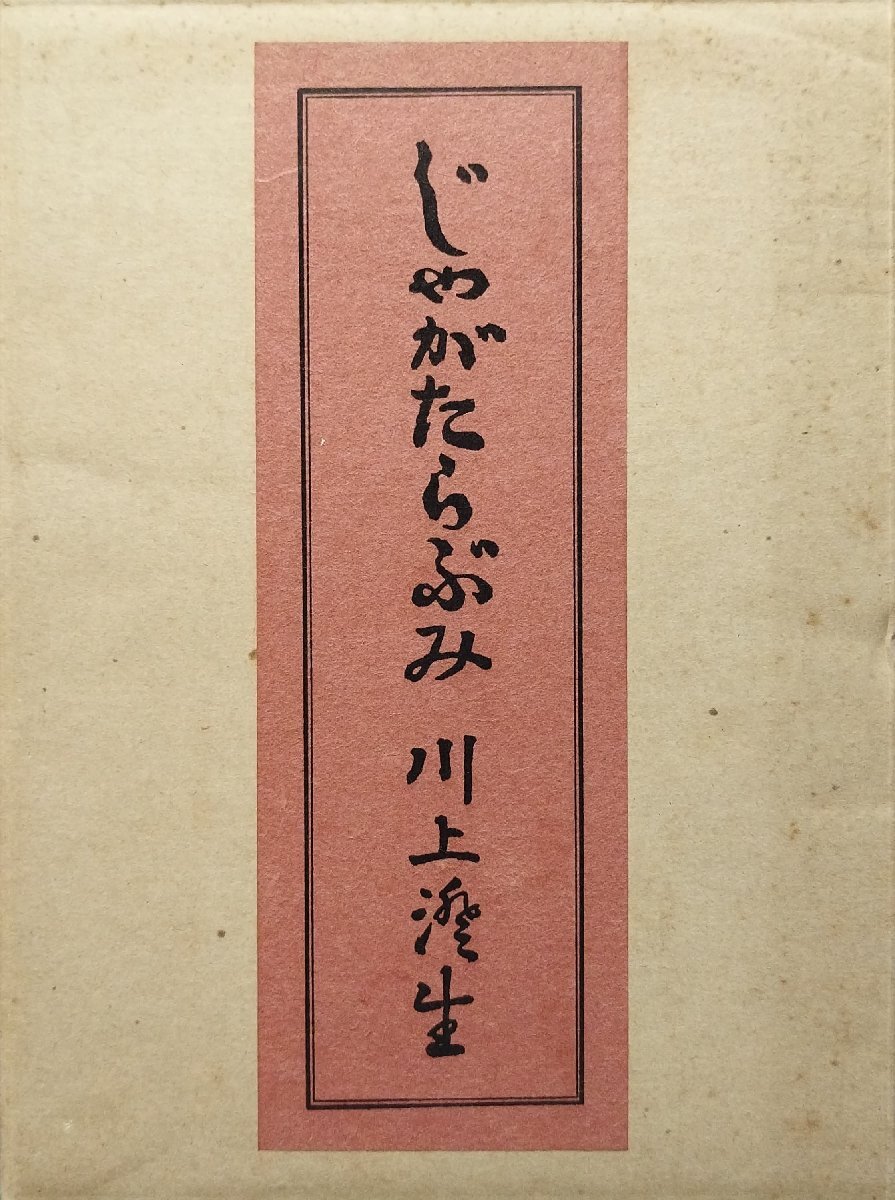 じゃがたらぶみ 川上澄生